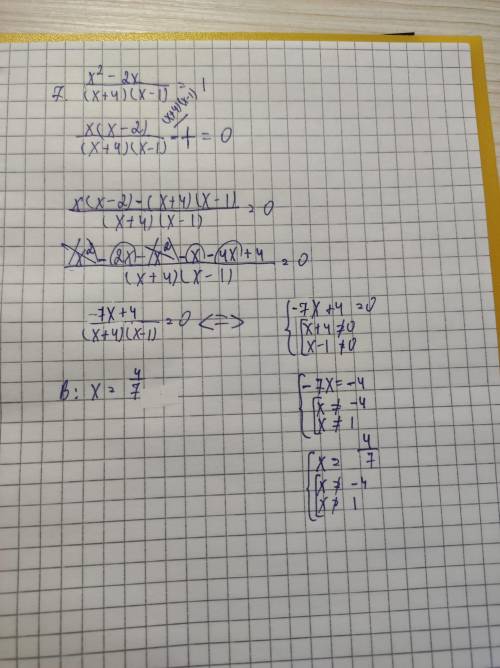 7. (x² - 2x)/((x+4)(x-1)) = 1
x(x-2)/((x+4)(x-1)) - 1 (x+4)(x-1) = 0
(x(x-2)-(x+4)(x-1))/((x+4)(x-1)) = 0
(x² - 2x - x² - x - 4x + 4)/((x+4)(x-1)) = 0
(-7x+4)/((x+4)(x-1)) = 0 <=> { -7x+4 = 0
[ x+4 ≠ 0
x-1 ≠ 0
В: x = 4/7
{ -7x = -4
[ x ≠ -4
x ≠ 1
{ x = 4/7
[ x ≠ -4
x ≠ 1